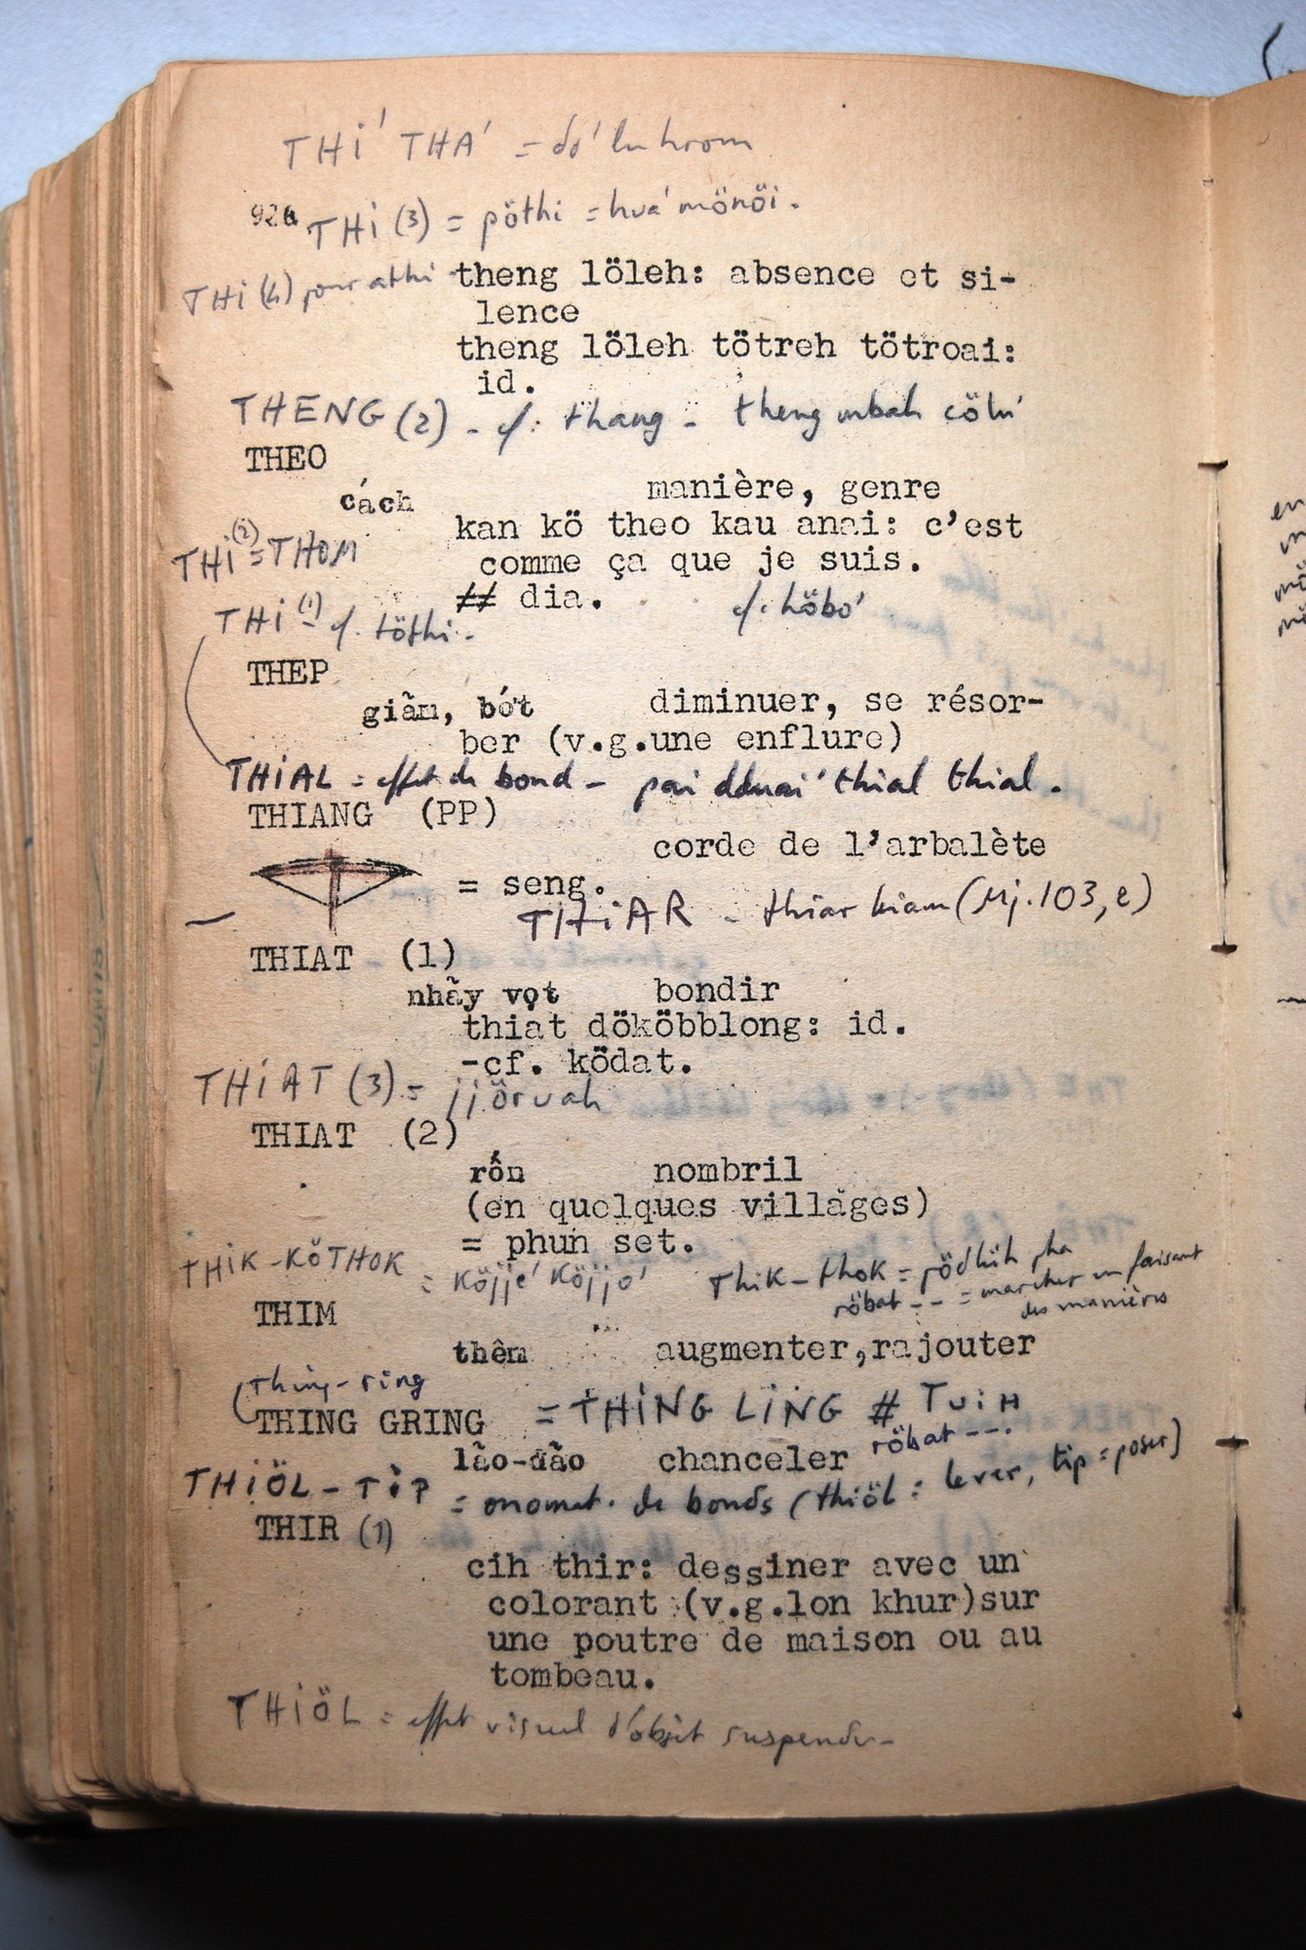 THI' THA' = dơ' lu hrom
92a THI (3) = pöthi = hua' mönöi.
THI (4) pour athi
theng löleh: absence et si-
lence
theng löleh tötreh tötroai:
id.
THENG (2) - cf. thang - theng mbah cölu'
THEO
cách manière, genre
kan kö theo kau anai: c'est
comme ça que je suis.
THI (2) = THOM
## dia. cf. höbo'
THI (1) - cf. töthi.
THEP
giãm, bớt diminuer, se résor-
ber (v.g.une enflure)
THIAL = effet de bond - pai thial thial.
THIANG (PP)
corde de l'arbalète
= seng.
THIAR - thiar kiam (Mj.103,2)
THIAT (1)
nhãy vọt bondir
thiat dököbblong: id.
-cf. ködat.
THIAT (3) = jjöruah
THIAT (2)
rốn nombril
(en quelques villages)
= phun set.
THIK-KÖTHOK = Köjje' Köjjo'
Thik-thok = pödhüh pha
röbat -- = marcher en faisant
des manières
THIM
thêm augmenter,rajouter
Thing-ring
THING GRING = THING LING # TUIH
röbat ---.
lão-đão chanceler
THIÖL-TIP = onomat. de bonds (thiöl = lever, tip = poser)
THIR (1)
cih thir: dessiner avec un
colorant (v.g.lon khur)sur
une poutre de maison ou au
tombeau.
THIÖL = effet visuel d'objet suspendu-